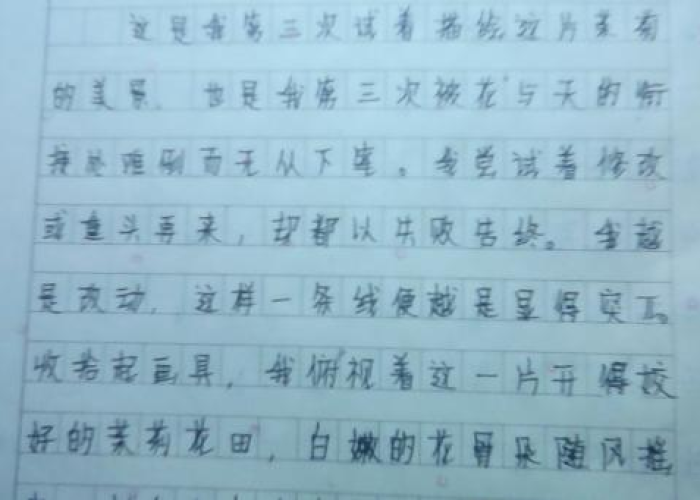 这是我第三次试着描绘这片茉莉
的美景，也是我第三次被花与天的衔
接处难倒而无从下笔。我尝试着修改
或重头再来，却都以失败告终。我越
是改动，这样一条线便越是显得突兀。
收拾起画具，我俯视着这一片开得姣
好的茉莉花田，白嫩的花骨朵随风摇